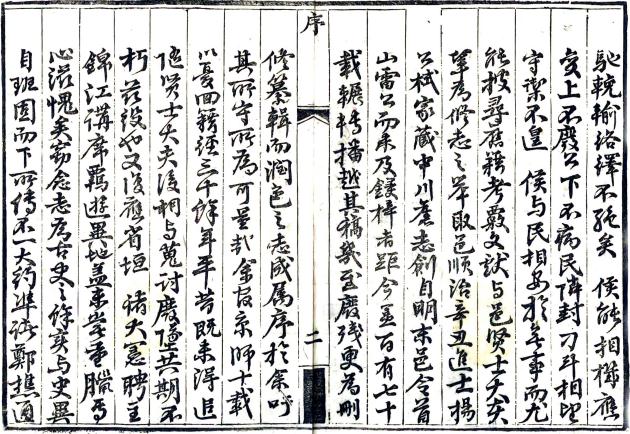 馳輓輸絡繹不絕矣　侯能相機應
變上不廢公下不病民隣封刁斗相望
守禦不遑　侯與民相安於無事而尤
能披尋舊籍考覈文獻與邑賢士大夫
肇為修志之舉取邑順治辛丑進士楊
公栻家藏中川舊志創自明末邑令
山雷公而未及鋟梓者距今蓋百有七十
載輾轉播越其稿幾至廢殘更為刪
序
二
修纂輯而潤色之志成屬序於余吁
其所守所為可量哉余官京師十載
以憂回籍經三千餘年平昔既未得追
隨賢士大夫後相與蒐討廢墜共期不
朽茲役也又復應省垣　諸大憲聘主
錦江講席羈遊異地蓋未嘗焉
心滋愧矣竊念志為古史之餘實與史異
自班固而下所傳不一大約準諸鄭樵通